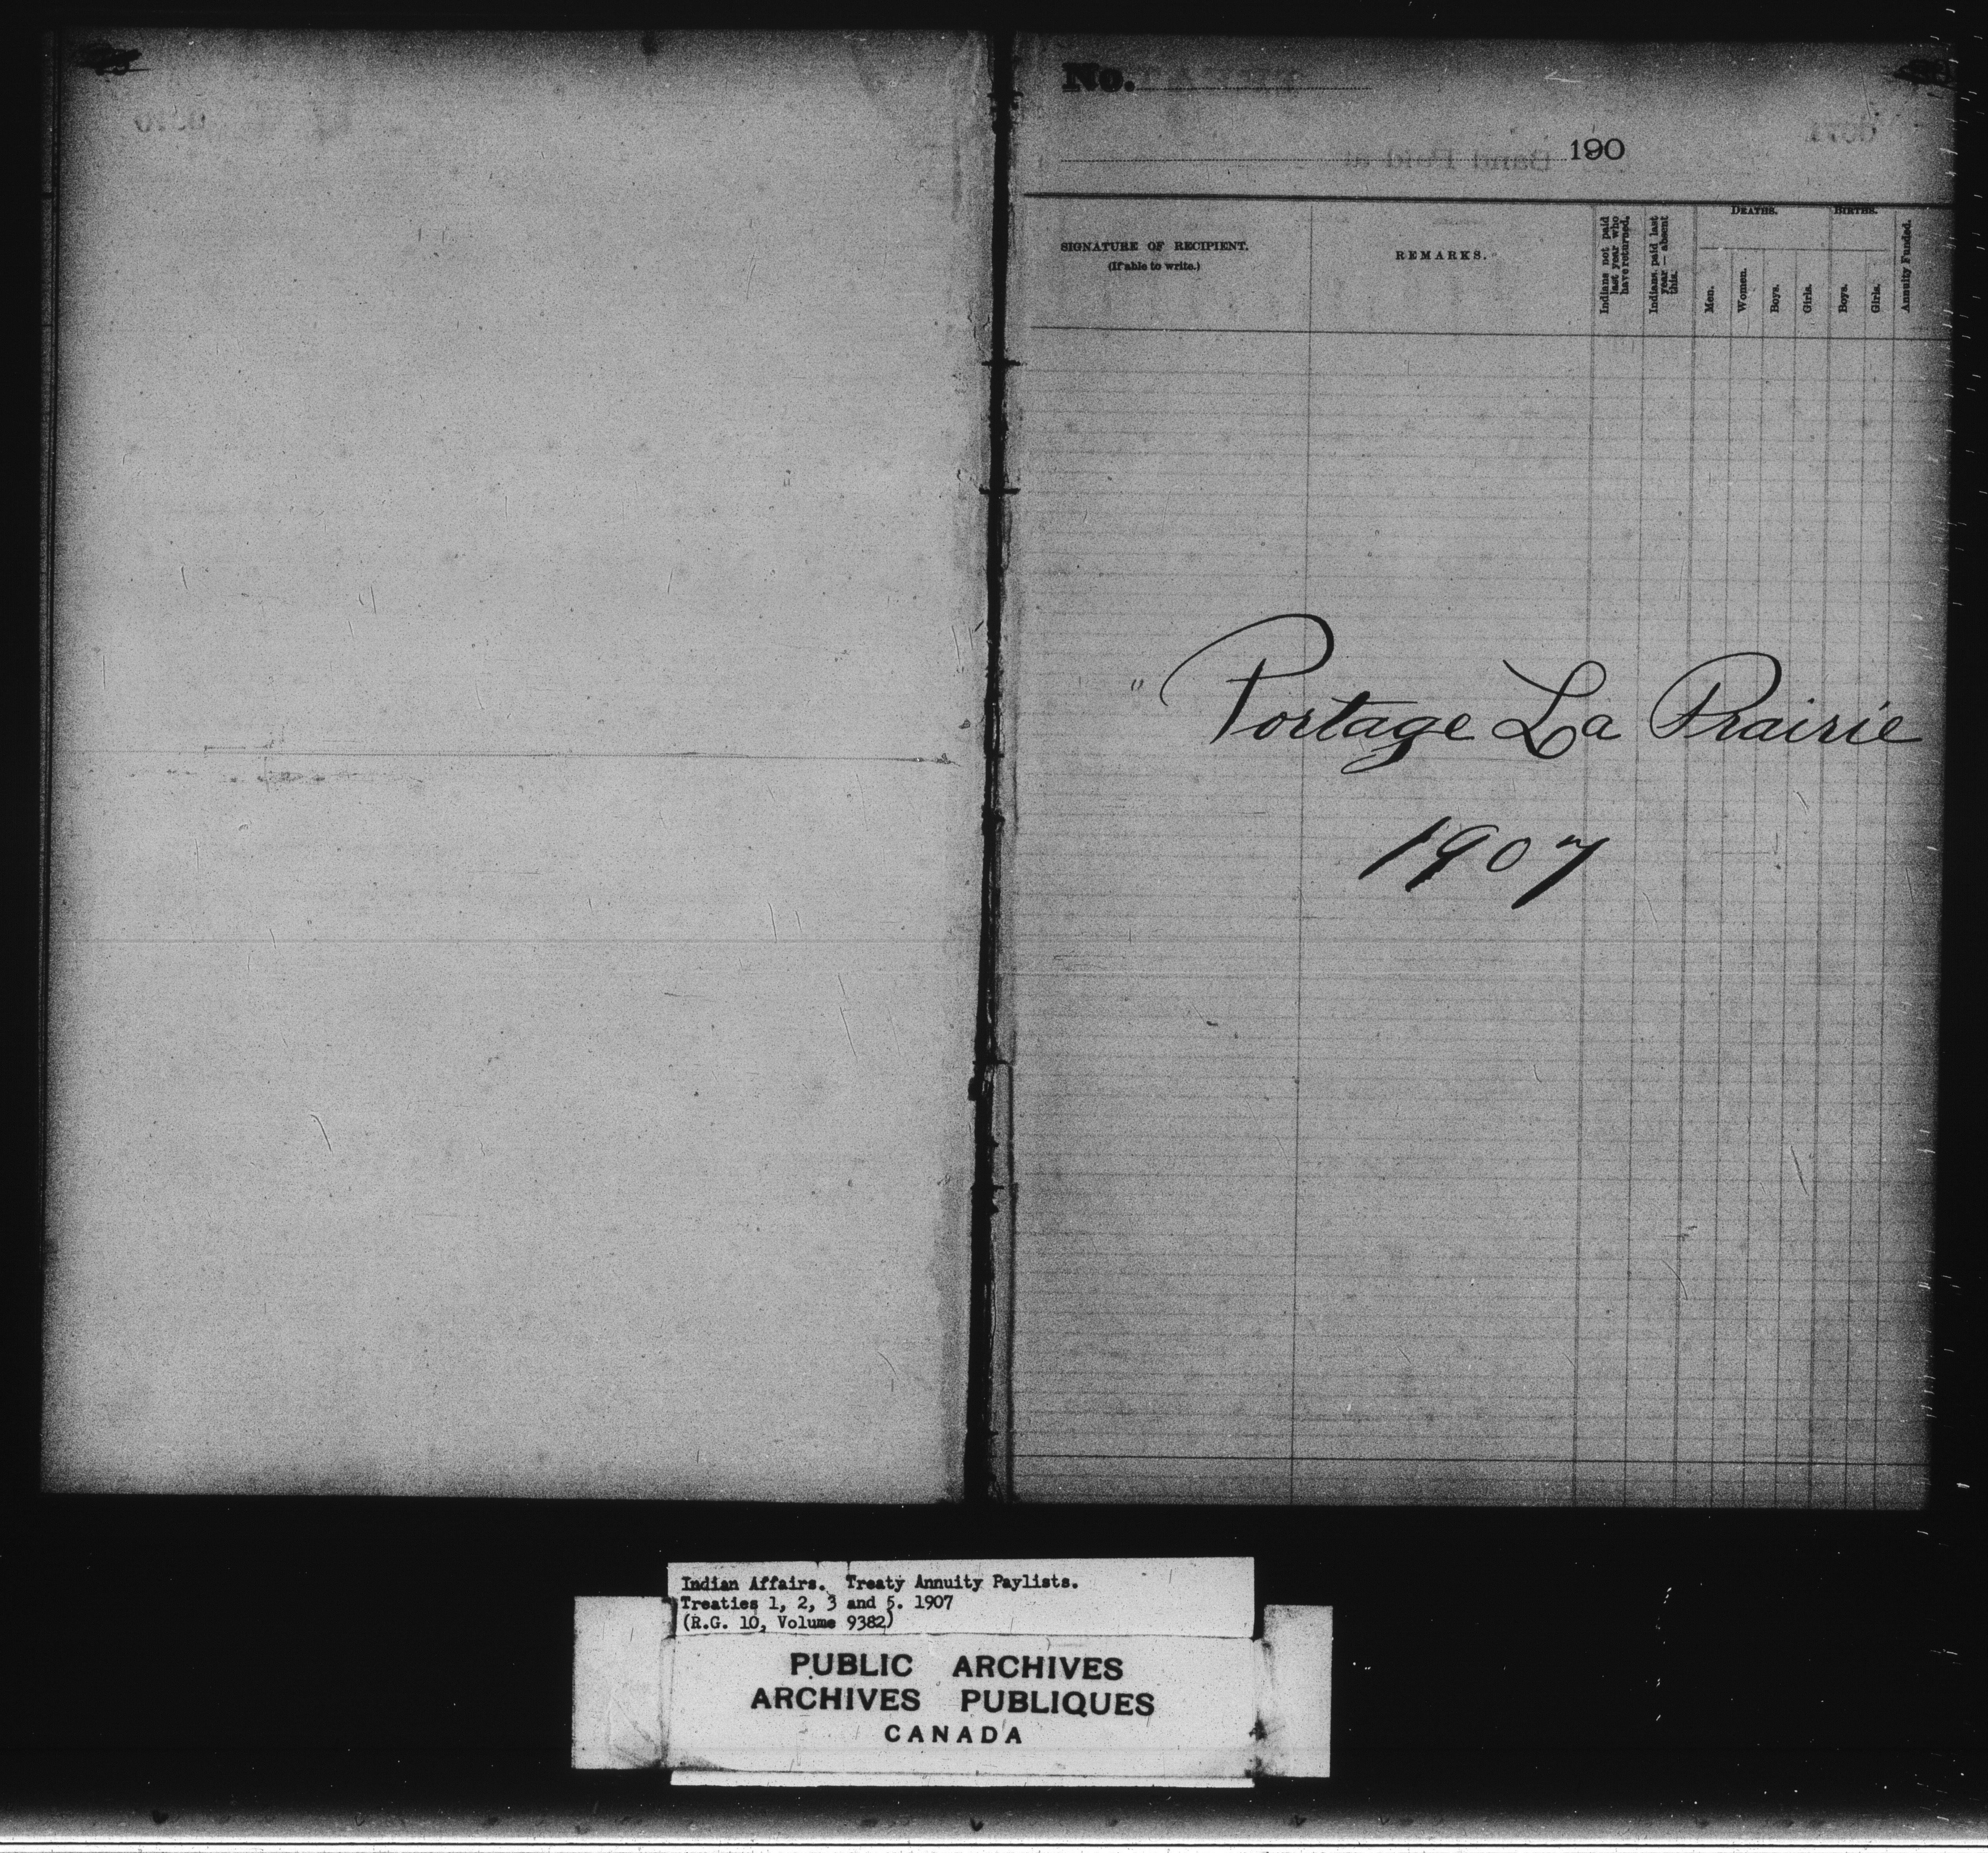 No.
190
SIGNATURE OF RECIPIENT.
(If able to write.)
REMARKS.
Indians not paid last year who have returned.
Indians paid last year — absent this.
DEATHS.
Men.
Women.
Boys.
Girls.
BIRTHS.
Boys.
Girls.
Annuity Funded.
"Portage La Prairie
1907
Indian Affairs. Treaty Annuity Paylists.
Treaties 1, 2, 3 and 5. 1907
(R.G. 10, Volume 9382)
PUBLIC ARCHIVES
ARCHIVES PUBLIQUES
CANADA